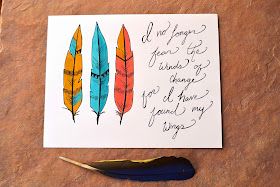 I no longer
fear the
winds of
change
for I have
found my
wings